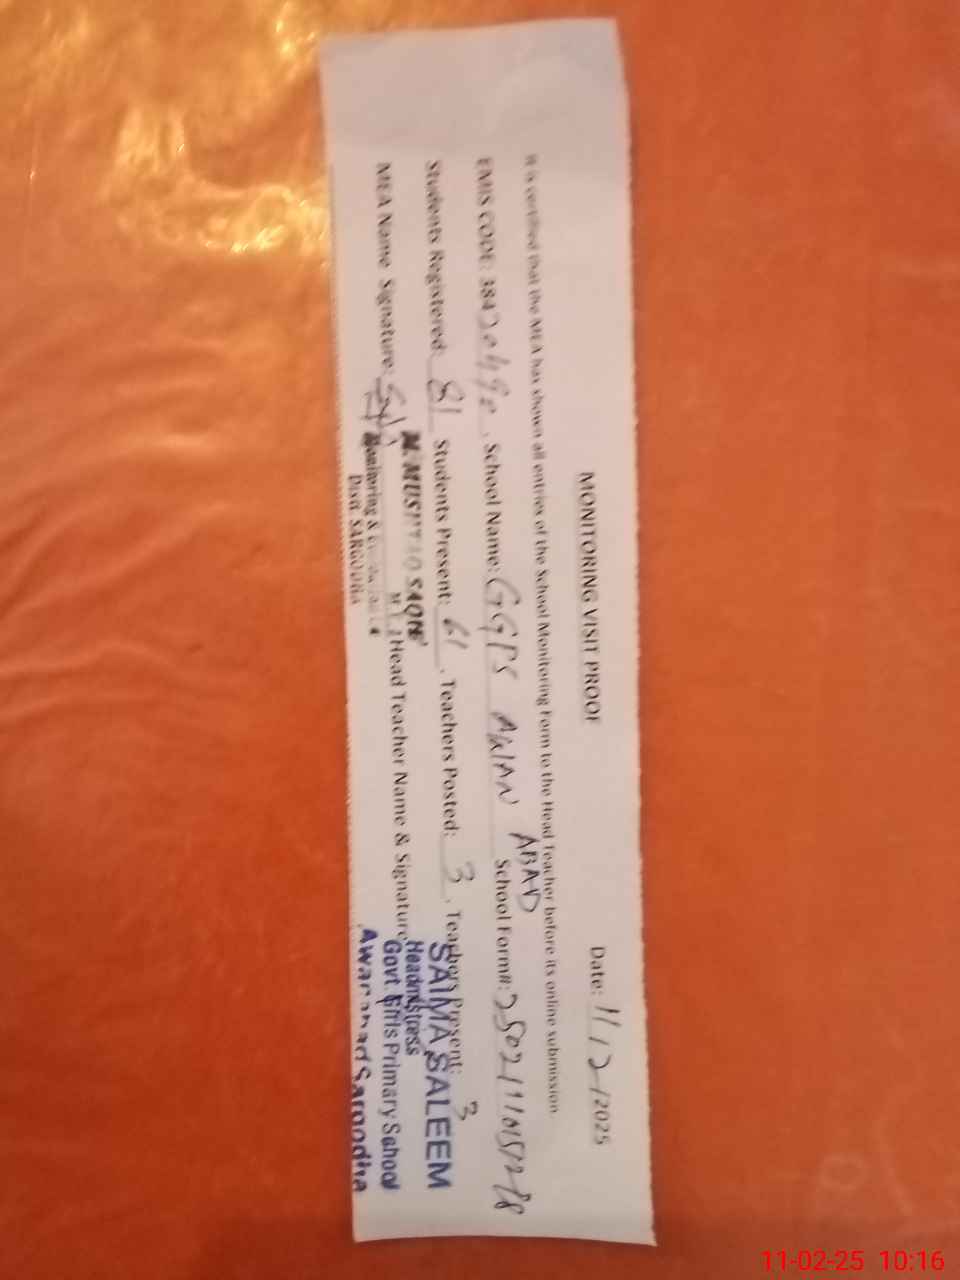 MONITORING VISIT PROOF
Date: 11/2/2025
It is certified that the MEA has shown all entries of the School Monitoring Form to the Head Teacher before its online submission.
EMIS CODE: 384 , School Name: GGPS AWAN ABAD School Form#:
Students Registered: 81 Students Present: 61 , Teachers Posted: 3 , Teachers Present: 3
MEA Name Signature: Head Teacher Name & Signature
M. MUSHTAQ SAQIB
Monitoring &
Distt. SARGODHA
SAIMA SALEEM
Headmistress
Govt. Girls Primary School
Awanabad Sargodha
11-02-25 10:16